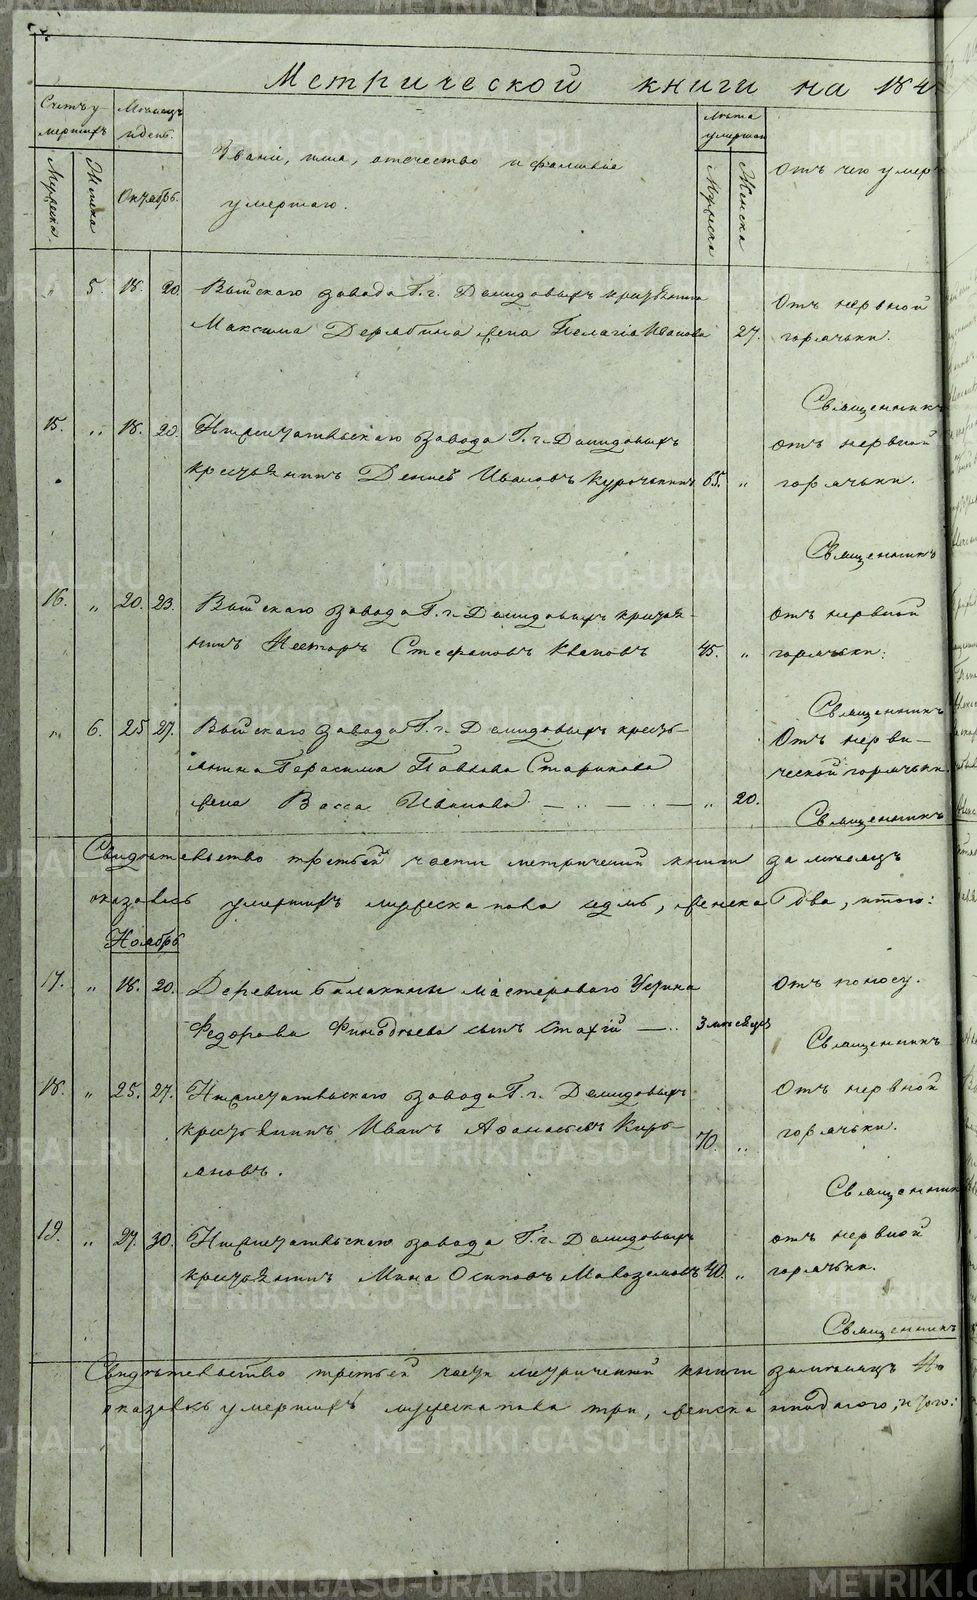 Метрической книги на 184
Счетъ у-
мершихъ
Мѣсяцъ
и день.
Званіе, имя, отечество и фамиліе
умершаго.
Лѣта
умершаго
Отъ чего умеръ
Мужска.
Женска
Октябрь.
Мужска
Женска
„ 5. 18. 20. Выйскаго завода Г. г. Демидовыхъ крестьянина
Максима Дерябина жена Пелагія Иванова 27. Отъ нервной
горячьки.
Священникъ
15. „ 18. 20. Нижнетагильскаго завода Г. г. Демидовыхъ
крестьянинъ Денисъ Ивановъ Курочькинъ 65. „ отъ нервной
горячьки.
Священникъ
16. „ 20. 23. Выйскаго завода Г. г. Демидовыхъ крестья-
нинъ Несторъ Стефановъ 45. „ отъ нервной
горячьки.
Священникъ
„ 6. 25 27. Выйскаго завода Г. г. Демидовыхъ кресть-
янина Герасима Павлова Старикова
жена Васса Иванова „ 20. Отъ нерви-
ческой горячьки.
Священникъ
Свидѣтельство третьей части метрической книги за мѣсяцъ
оказалось умершихъ мужеска пола седмь, женска два, итого:
Ноябрь
17. „ 18. 20. Деревни Балакины мастероваго
Федорова сынъ Стахій 3 мѣсяца Отъ поносу.
Священникъ
18. „ 25. 27. Нижнетагильскаго завода Г. г. Демидовыхъ
крестьянинъ Иванъ Афанасьевъ Кирь-
яновъ. 70. „ Отъ нервной
горячьки.
Священникъ
19. „ 27. 30. Нижнетагильскаго завода Г. г. Демидовыхъ
крестьянинъ Мина Осиповъ 40. „ отъ нервной
горячьки.
Священникъ
Свидѣтельство третьей части метрической книги за мѣсяцъ Но
оказалось умершихъ мужеска пола три, женска ниодного, итого:
METRIKI.GASO-URAL.RU